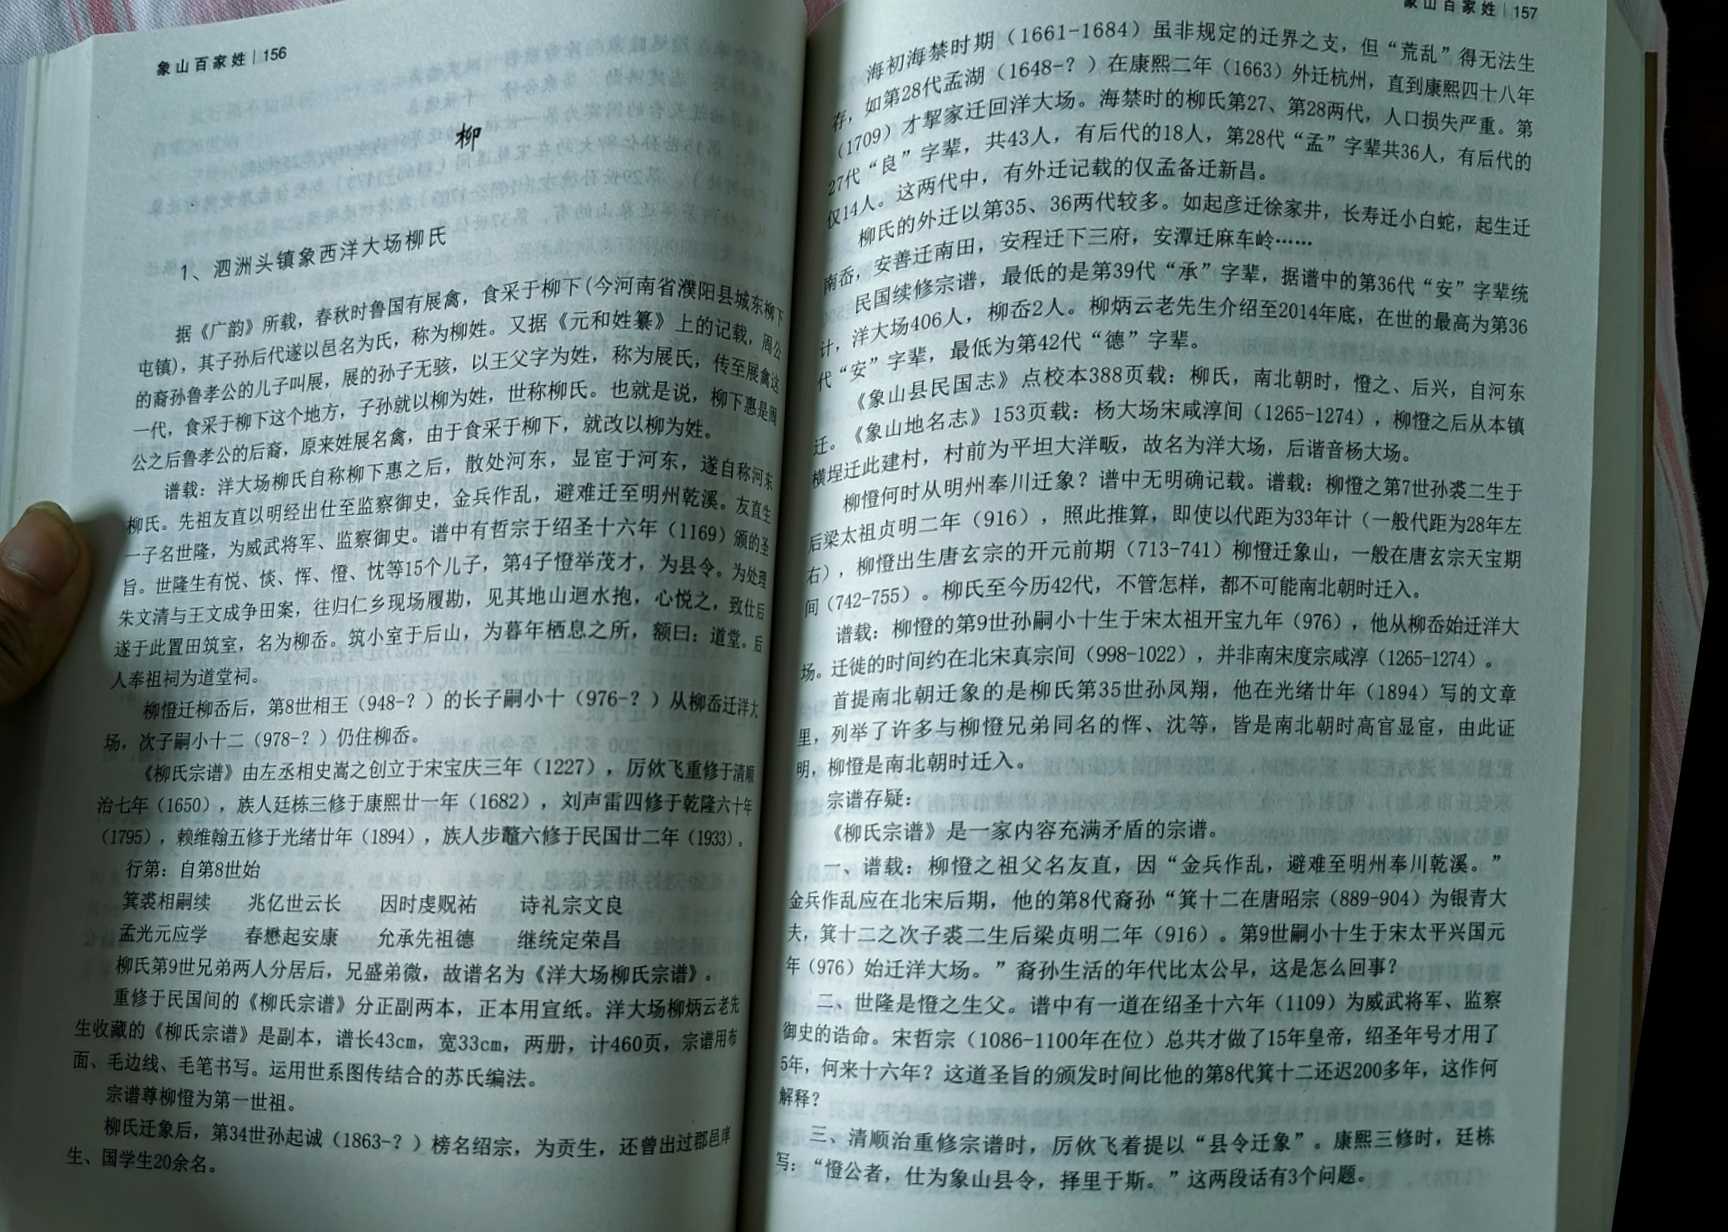 象山百家姓 | 156
柳
1、泗洲头镇象西洋大场柳氏
据《广韵》所载，春秋时鲁国有展禽，食采于柳下(今河南省濮阳县城东柳下
屯镇)，其子孙后代遂以邑名为氏，称为柳姓。又据《元和姓纂》上的记载，周公
的裔孙鲁孝公的儿子叫展，展的孙子无骇，以王父字为姓，称为展氏，传至展禽这
一代，食采于柳下这个地方，子孙就以柳为姓，世称柳氏。也就是说，柳下惠是周
公之后鲁孝公的后裔，原来姓展名禽，由于食采于柳下，就改以柳为姓。
谱载：洋大场柳氏自称柳下惠之后，散处河东，显宦于河东，遂自称河东
柳氏。先祖友直以明经出仕至监察御史，金兵作乱，避难迁至明州乾溪。友直生
一子名世隆，为威武将军、监察御史。谱中有哲宗于绍圣十六年（1169）颁的圣
旨。世隆生有悦、惔、恽、憕、忱等15个儿子，第4子憕举茂才，为县令。为处理
朱文清与王文成争田案，往归仁乡现场履勘，见其地山迴水抱，心悦之，致仕后
遂于此置田筑室，名为柳岙。筑小室于后山，为暮年栖息之所，额曰：道堂。后
人奉祖祠为道堂祠。
柳憕迁柳岙后，第8世相王（948-？）的长子嗣小十（976-？）从柳岙迁洋大
场，次子嗣小十二（978-？）仍住柳岙。
《柳氏宗谱》由左丞相史嵩之创立于宋宝庆三年（1227），厉攸飞重修于清顺
治七年（1650），族人廷栋三修于康熙廿一年（1682），刘声雷四修于乾隆六十年
（1795），赖维翰五修于光绪廿年（1894），族人步鼇六修于民国廿二年（1933）。
行第：自第8世始
箕裘相嗣续　兆亿世云长　因时虔贶祐　诗礼宗文良
孟光元应学　春懋起安康　允承先祖德　继统定荣昌
柳氏第9世兄弟两人分居后，兄盛弟微，故谱名为《洋大场柳氏宗谱》。
重修于民国间的《柳氏宗谱》分正副两本，正本用宣纸。洋大场柳炳云老先
生收藏的《柳氏宗谱》是副本，谱长43cm，宽33cm，两册，计460页，宗谱用布
面、毛边线、毛笔书写。运用世系图传结合的苏氏编法。
宗谱尊柳憕为第一世祖。
柳氏迁象后，第34世孙起诚（1863-？）榜名绍宗，为贡生，还曾出过郡邑庠
生、国学生20余名。
象山百家姓 | 157
海初海禁时期（1661-1684）虽非规定的迁界之支，但“荒乱”得无法生
存，如第28代孟湖（1648-？）在康熙二年（1663）外迁杭州，直到康熙四十八年
（1709）才挈家迁回洋大场。海禁时的柳氏第27、第28两代，人口损失严重。第
27代“良”字辈，共43人，有后代的18人，第28代“孟”字辈共36人，有后代的
仅14人。这两代中，有外迁记载的仅孟备迁新昌。
柳氏的外迁以第35、36两代较多。如起彦迁徐家井，长寿迁小白蛇，起生迁
南岙，安善迁南田，安程迁下三府，安潭迁麻车岭……
民国续修宗谱，最低的是第39代“承”字辈，据谱中的第36代“安”字辈统
计，洋大场406人，柳岙2人。柳炳云老先生介绍至2014年底，在世的最高为第36
代“安”字辈，最低为第42代“德”字辈。
《象山县民国志》点校本388页载：柳氏，南北朝时，憕之、后兴，自河东
迁。《象山地名志》153页载：杨大场宋咸淳间（1265-1274），柳憕之后从本镇
横埕迁此建村，村前为平坦大洋畈，故名为洋大场，后谐音杨大场。
柳憕何时从明州奉川迁象？谱中无明确记载。谱载：柳憕之第7世孙裘二生于
后梁太祖贞明二年（916），照此推算，即使以代距为33年计（一般代距为28年左
右），柳憕出生唐玄宗的开元前期（713-741）柳憕迁象山，一般在唐玄宗天宝期
间（742-755）。柳氏至今历42代，不管怎样，都不可能南北朝时迁入。
谱载：柳憕的第9世孙嗣小十生于宋太祖开宝九年（976），他从柳岙始迁洋大
场。迁徙的时间约在北宋真宗间（998-1022），并非南宋度宗咸淳（1265-1274）。
首提南北朝迁象的是柳氏第35世孙凤翔，他在光绪廿年（1894）写的文章
里，列举了许多与柳憕兄弟同名的恽、沈等，皆是南北朝时高官显宦，由此证
明，柳憕是南北朝时迁入。
宗谱存疑：
《柳氏宗谱》是一家内容充满矛盾的宗谱。
一、谱载：柳憕之祖父名友直，因“金兵作乱，避难至明州奉川乾溪。”
金兵作乱应在北宋后期，他的第8代裔孙“箕十二在唐昭宗（889-904）为银青大
夫，箕十二之次子裘二生后梁贞明二年（916）。第9世嗣小十生于宋太平兴国元
年（976）始迁洋大场。”裔孙生活的年代比太公早，这是怎么回事？
二、世隆是憕之生父。谱中有一道在绍圣十六年（1109）为威武将军、监察
御史的诰命。宋哲宗（1086-1100年在位）总共才做了15年皇帝，绍圣年号才用了
5年，何来十六年？这道圣旨的颁发时间比他的第8代箕十二还迟200多年，这作何
解释？
三、清顺治重修宗谱时，厉攸飞着提以“县令迁象”。康熙三修时，廷栋
写：“憕公者，仕为象山县令，择里于斯。”这两段话有3个问题。